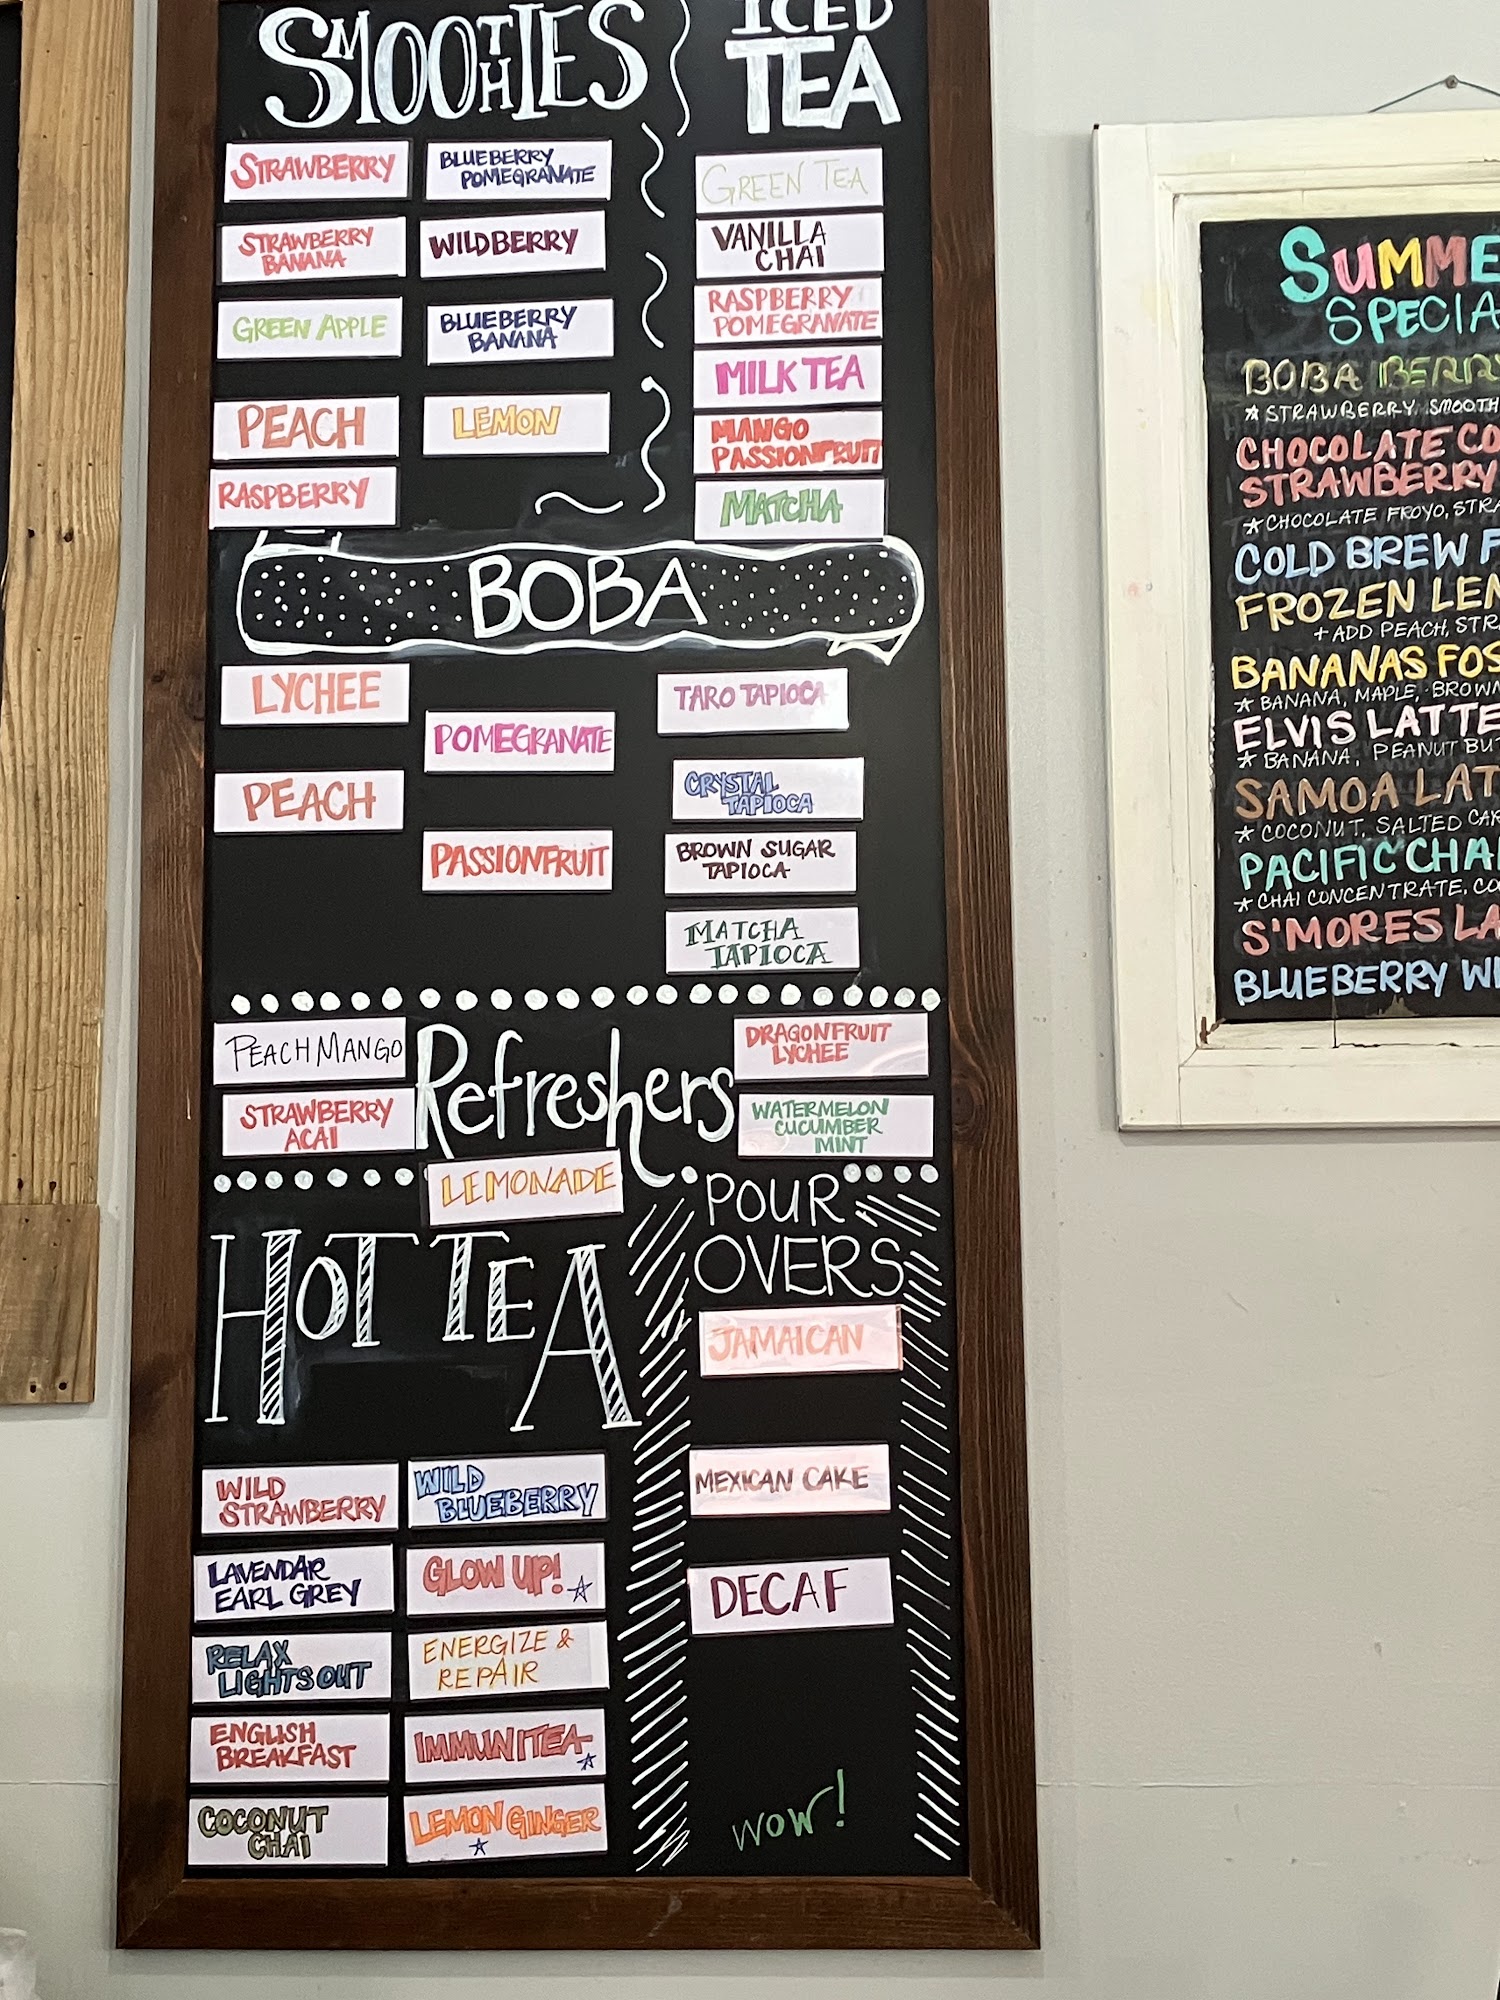 SMOOTHIES
STRAWBERRY
STRAWBERRY
BANANA
GREEN APPLE
PEACH
RASPBERRY
BLUEBERRY
POMEGRANATE
WILDBERRY
BLUEBERRY
BANANA
LEMON
ICED
TEA
GREEN TEA
VANILLA
CHAI
RASPBERRY
POMEGRANATE
MILK TEA
MANGO
PASSIONFRUIT
MATCHA
BOBA
LYCHEE
PEACH
POMEGRANATE
PASSIONFRUIT
TARO TAPIOCA
CRYSTAL
TAPIOCA
BROWN SUGAR
TAPIOCA
MATCHA
TAPIOCA
Refreshers
PEACH MANGO
STRAWBERRY
ACAI
LEMONADE
DRAGONFRUIT
LYCHEE
WATERMELON
CUCUMBER
MINT
HOT TEA
WILD
STRAWBERRY
LAVENDAR
EARL GREY
RELAX
LIGHTS OUT
ENGLISH
BREAKFAST
COCONUT
CHAI
WILD
BLUEBERRY
GLOW UP!
ENERGIZE &
REPAIR
IMMUNITEA
LEMON GINGER
POUR
OVERS
JAMAICAN
MEXICAN CAKE
DECAF
WOW!
SUMME
SPECIA
BOBA BERRY
STRAWBERRY SMOOTH
CHOCOLATE CO
STRAWBERRY
CHOCOLATE FROYO, STRA
COLD BREW F
FROZEN LEM
+ ADD PEACH, STR
BANANAS FOS
BANANA, MAPLE, BROWN
ELVIS LATTE
BANANA, PEANUT BUT
SAMOA LAT
COCONUT, SALTED CAR
PACIFIC CHA
CHAI CONCENTRATE, CO
S'MORES LA
BLUEBERRY W